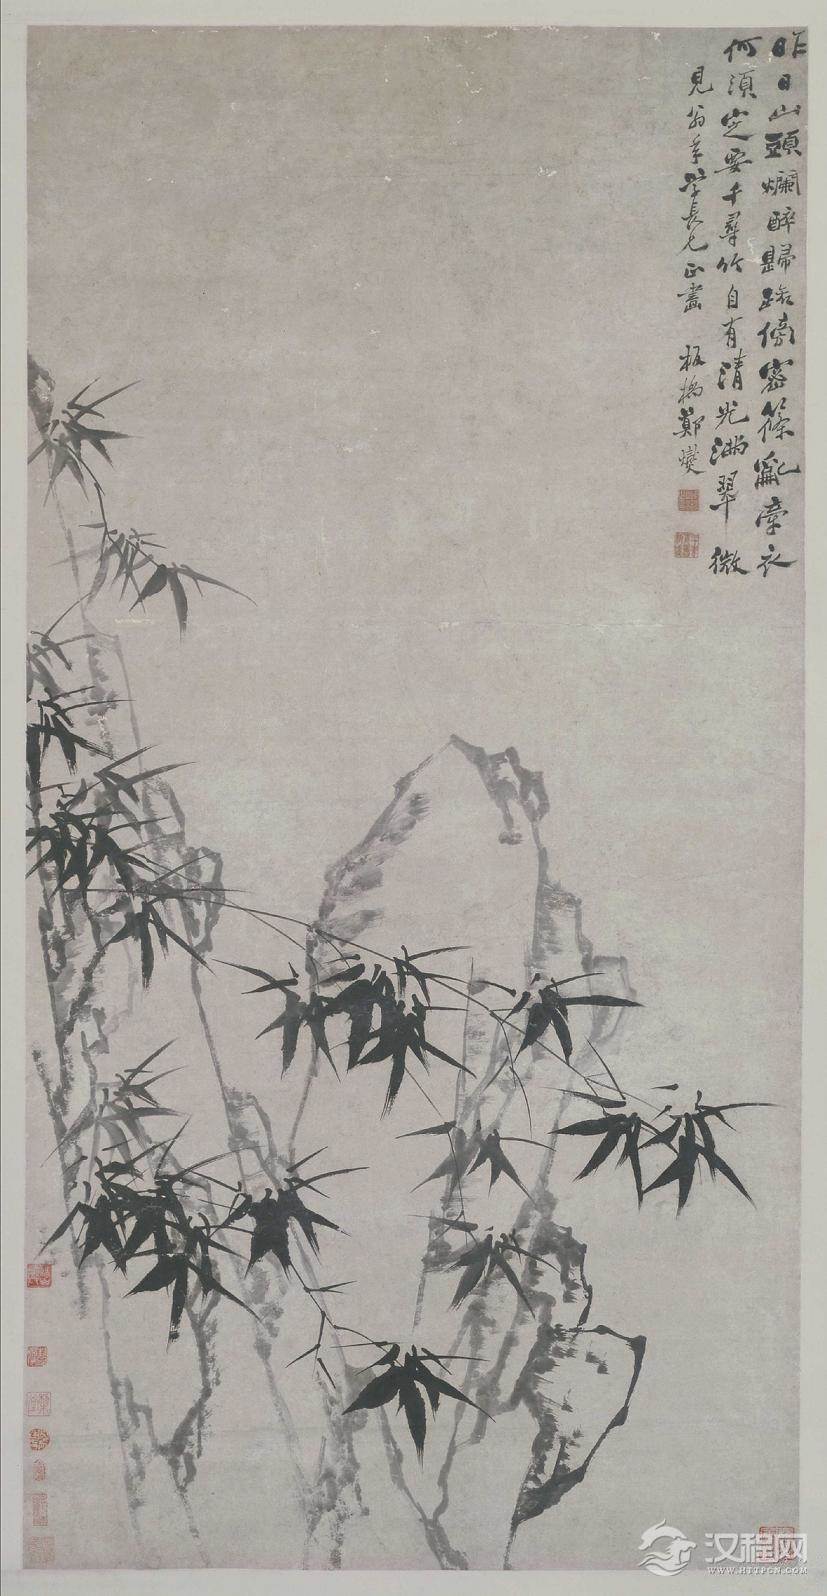 昨日山頭爛醉歸路傍密篠亂牽衣
何須定要千尋竹自有清光滿翠微
見翁年學長兄正畫 板橋鄭燮
汉程网
WWW.HTTPCN.COM